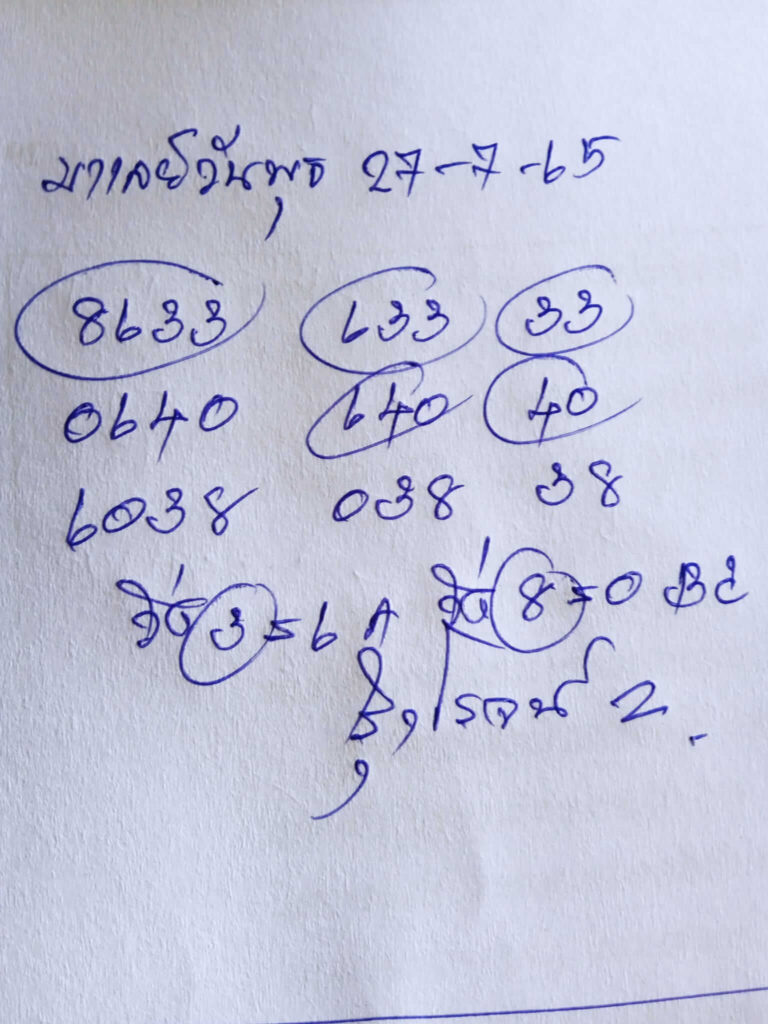 มาเลย์วันพุธ 27-7-65
8633 633 33
0640 640 40
6038 038 38
วิ่ง 3=6 A วิ่ง 8=0 BC
โรจน์ 2.